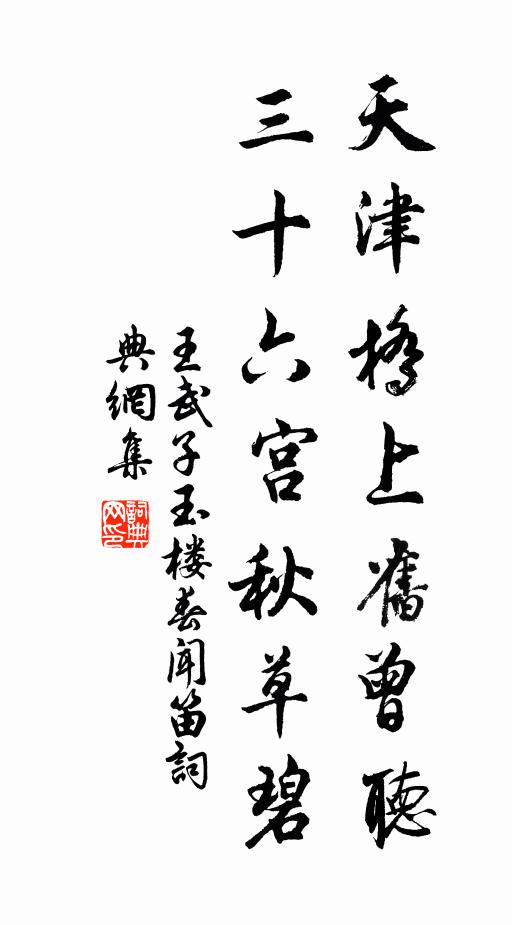 天津橋上舊曾聽
三十六宮秋草碧
王武子玉楼春闻笛詞
典網集
詞典
网印